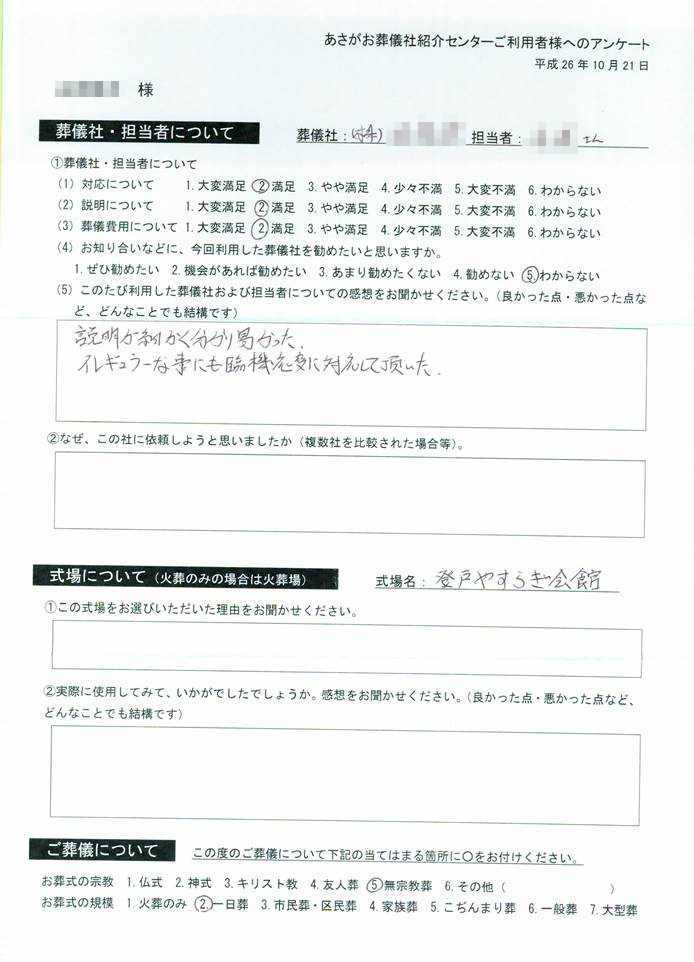 あさがお葬儀社紹介センターご利用者様へのアンケート
平成26年10月21日
様
葬儀社・担当者について 葬儀社：(株) 担当者： さん
①葬儀社・担当者について
(1) 対応について 1.大変満足 ②満足 3.やや満足 4.少々不満 5.大変不満 6.わからない
(2) 説明について 1.大変満足 ②満足 3.やや満足 4.少々不満 5.大変不満 6.わからない
(3) 葬儀費用について 1.大変満足 ②満足 3.やや満足 4.少々不満 5.大変不満 6.わからない
(4) お知り合いなどに、今回利用した葬儀社を勧めたいと思いますか。
1.ぜひ勧めたい 2.機会があれば勧めたい 3.あまり勧めたくない 4.勧めない ⑤わからない
(5) このたび利用した葬儀社および担当者についての感想をお聞かせください。（良かった点・悪かった点な
ど、どんなことでも結構です）
説明が細かく分かり易かった.
イレギュラーな事にも臨機応変に対応して頂いた.
②なぜ、この社に依頼しようと思いましたか（複数社を比較された場合等）。
式場について（火葬のみの場合は火葬場） 式場名：登戸やすらぎ会館
①この式場をお選びいただいた理由をお聞かせください。
②実際に使用してみて、いかがでしたでしょうか。感想をお聞かせください。（良かった点・悪かった点など、
どんなことでも結構です）
ご葬儀について この度のご葬儀について下記の当てはまる箇所に○をお付けください。
お葬式の宗教 1.仏式 2.神式 3.キリスト教 4.友人葬 ⑤無宗教葬 6.その他（ ）
お葬式の規模 1.火葬のみ ②一日葬 3.市民葬・区民葬 4.家族葬 5.こぢんまり葬 6.一般葬 7.大型葬